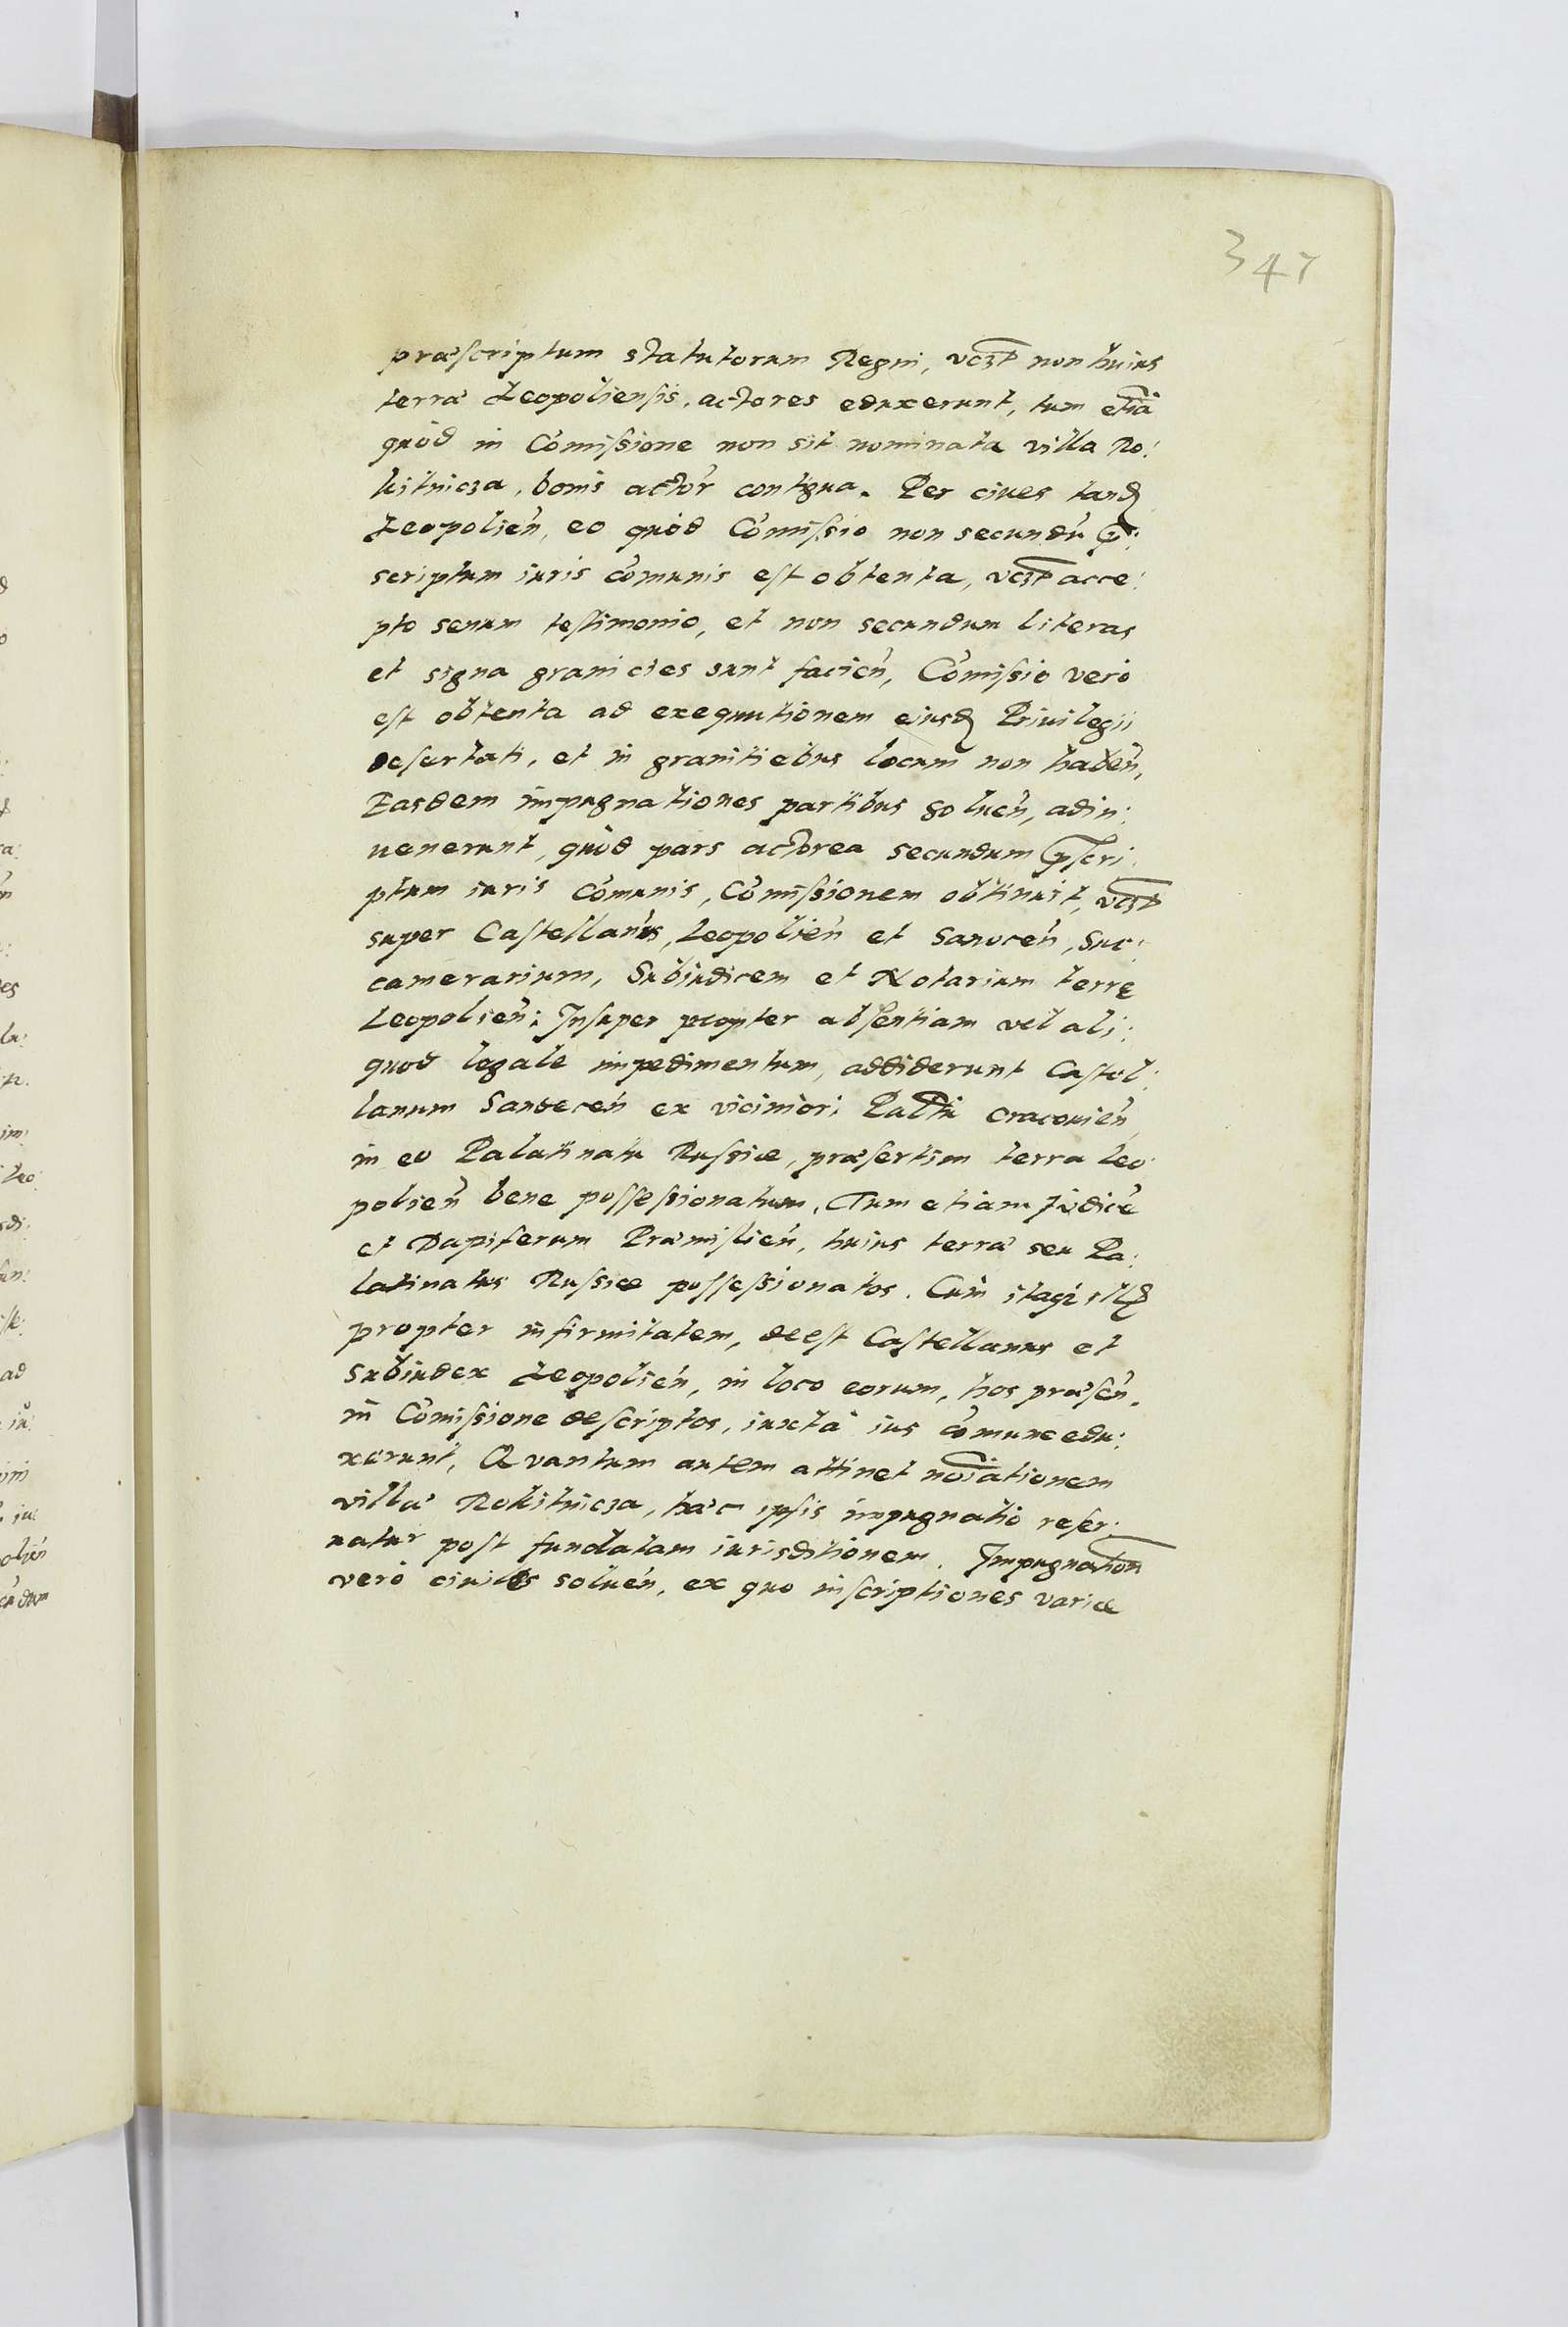 347
præscriptum statutorum Regni, vczt non huius
terræ Leopoliensis, actores eduxerunt, tum etiã
quòd in Comißione non sit nominata villa Ro:
kitnicza, bonis actor̃ contigua. Per ciues tandẽ
Leopolien̄, eo quòd Com̄issio non secundũ p̄:
scriptum iuris com̄unis est obtenta, vczt acce:
pto senum testimonio, et non secundum literas
et signa granicies sunt facien̄, Com̄issio verò
est obtenta ad exequutionem eiusdẽ Priuilegii
desertati, et in granitiebus locum non haben̄,
Easdem impugnationes partibus soluen̄, adin:
uenerunt, quòd pars actorea secundum p̄scri:
ptum iuris com̄unis, Com̄issionem obtinuit, vczt
super Castellanũs, Leopolien̄ et Sanocen̄, Suc:
camerarium, Subiudicem et Notarium terrę
Leopolien̄: Insuper propter absentiam vel ali:
quod legale impedimentum, addiderunt Castel:
lanum Sandecen̄ ex viciniori Paltũ Cracouien̄,
in eo Palatinatu Russiæ, præsertim terra Leo:
polien̄ bene possessionatum, Tum etiam Iudicẽ
et Dapiferum Præmislien̄, huius terræ seu Pa:
latinatus Russiæ possessionatos. Cùm itaq;
propter infirmitatem, deest Castellanus et
Subiudex Leopolien̄, in loco eorum, hos præsen̄,
in Com̄issione descriptos, iuxta ius com̄une edu:
xerunt, Quantum autem attinet noĩationem
villæ Rokitnicza, hæc ipsis impugnatio reser:
uatur post fundatam iurisditionem. Impugnation̄
verò ciuiles soluen̄, ex quo inscriptiones variæ